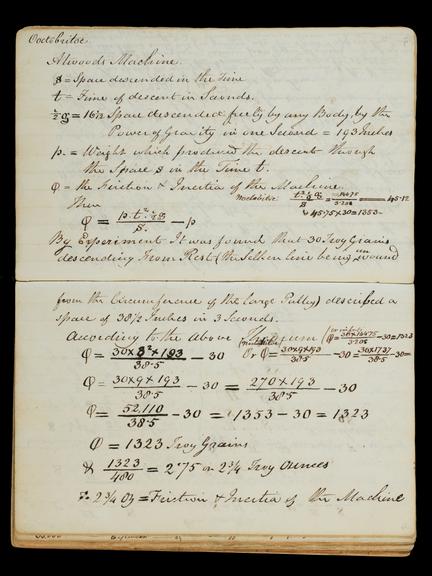 Octobitsc.
Atwoods Machine.
s = Space descended in the Time
t = Time of descent in Seconds.
½g = 16½ Space descended freely by any Body, by the
Power of Gravity in one Second = 193 Inches
p. = Weight which produced the descent through
the Space s in the Time t.
φ = the Friction & Inertia of the Machine
Then
φ = p.t².½g / s. - p
4575×30=1353-
By Experiment It was found that 30 Troy Grains
descending From Rest (the Silken line being unwound
from the Circumference of the large Pulley) described a
space of 38½ Inches in 3 Seconds.
According to the above
φ = 30×3²×193 / 38·5 - 30 Or φ = 30×9×193 / 38·5 - 30 = 30×1737 / 38·5 - 30 =
φ = 30×9×193 / 38·5 - 30 = 270×193 / 38·5 - 30
φ = 52,110 / 38·5 - 30 = 1353 - 30 = 1323
φ = 1323 Troy Grains
& 1323 / 480 = 2·75 or 2¾ Troy Ounces
∴ 2¾ Oz = Friction & Inertia of the Machine